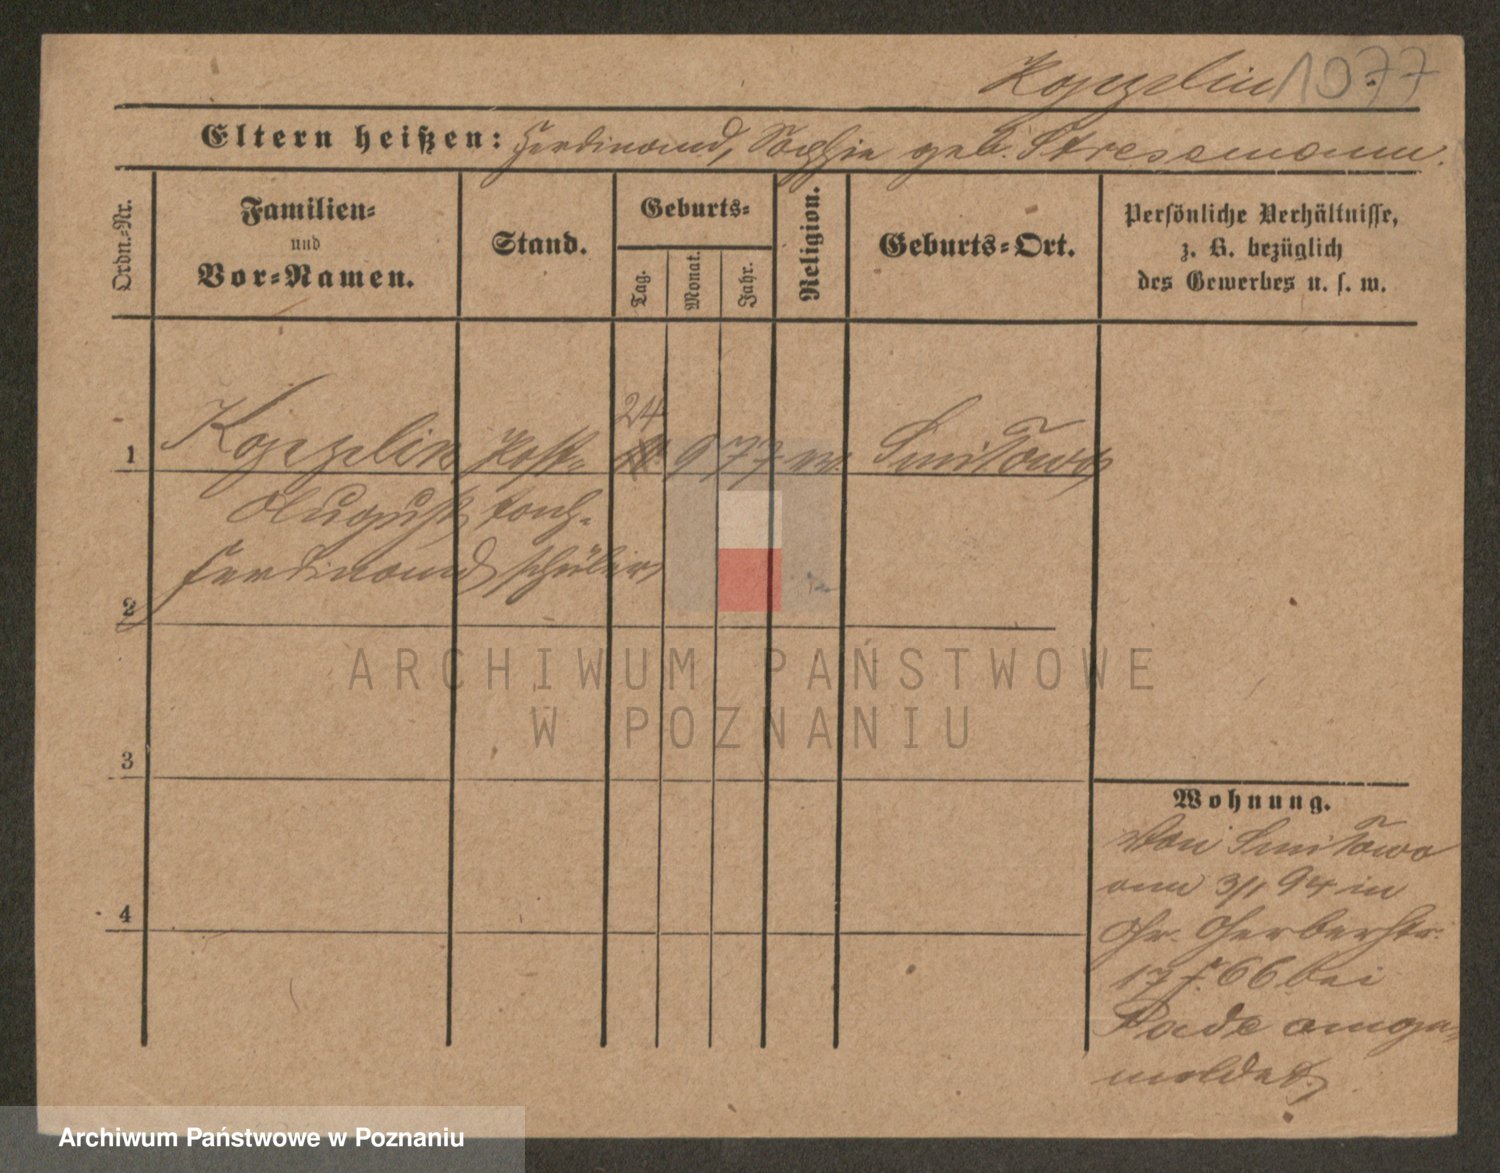 Koppelin 1977
Eltern heißen: Ferdinand, Sophie geb. Stressmann.
Ordn.-Nr.
Familien-
und
Vor-Namen.
Stand.
Geburts-
Tag.
Monat.
Jahr.
Religion.
Geburts-Ort.
Persönliche Verhältnisse,
z. B. bezüglich
des Gewerbes u. s. w.
24
1 Koppelin Post- 9 77 Smilowo
August fach-
Ferdinand schüler
2
3
4
Wohnung.
Von Smilowo
am 3/1 94 in
Gr. Gerberstr.
17 66 bei
Rade ange-
meldet.
ARCHIWUM PAŃSTWOWE
W POZNANIU
Archiwum Państwowe w Poznaniu